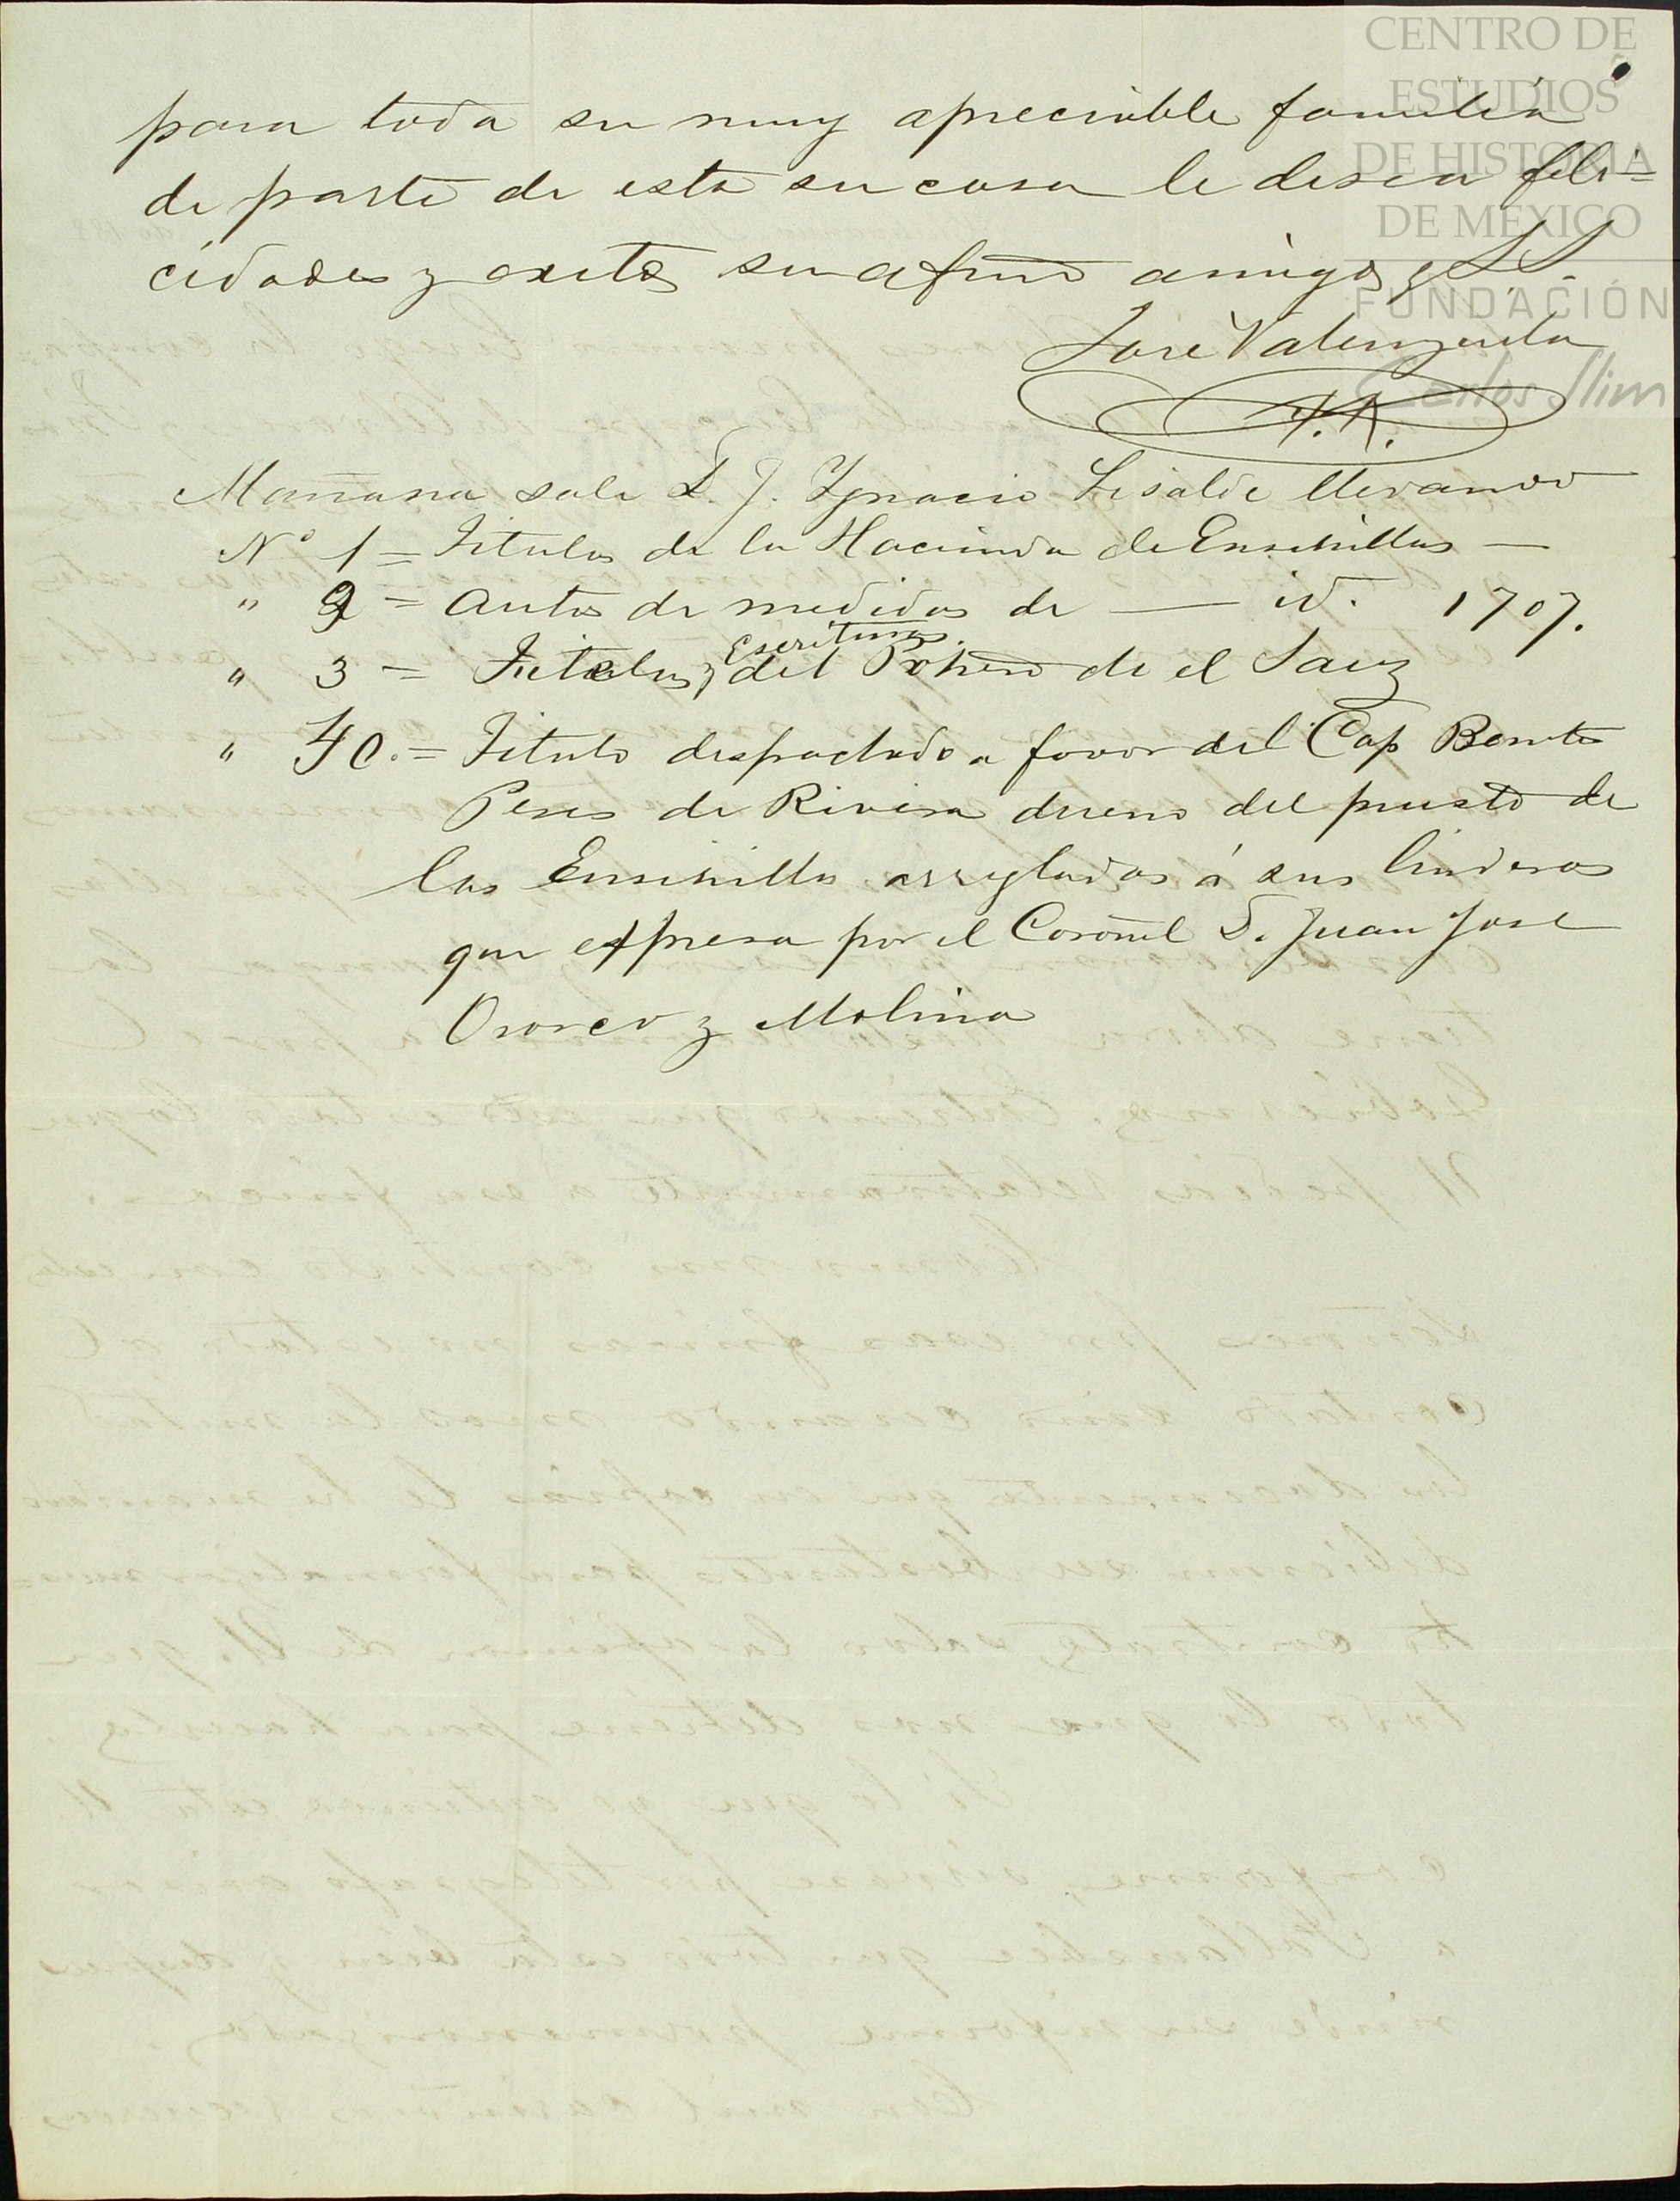 CENTRO DE
ESTUDIOS
DE HISTORIA
DE MÉXICO
FUNDACIÓN
Carlos Slim
para toda su muy apreciable familia
de parte de esta su casa le desea feli=
cidades y exitos su afmo amigo y S.S.
José Valenzuela
Mañana sale D. J. Ygnacio Lisalde llevando
Nº 1 = Titulos de la Hacienda de Ensinillas —
" 2 = Autos de medidas de — id. 1707.
Escrituras.
" 3 = Titulos y del Potrero de el Sauz
" 4º. = Titulo despachado a favor del Cap Benito
Peres de Rivera dueno del puesto de
las Ensinillas arregladas á sus linderos
que espresa por el Coronel D. Juan Jose
Orosco y Molina